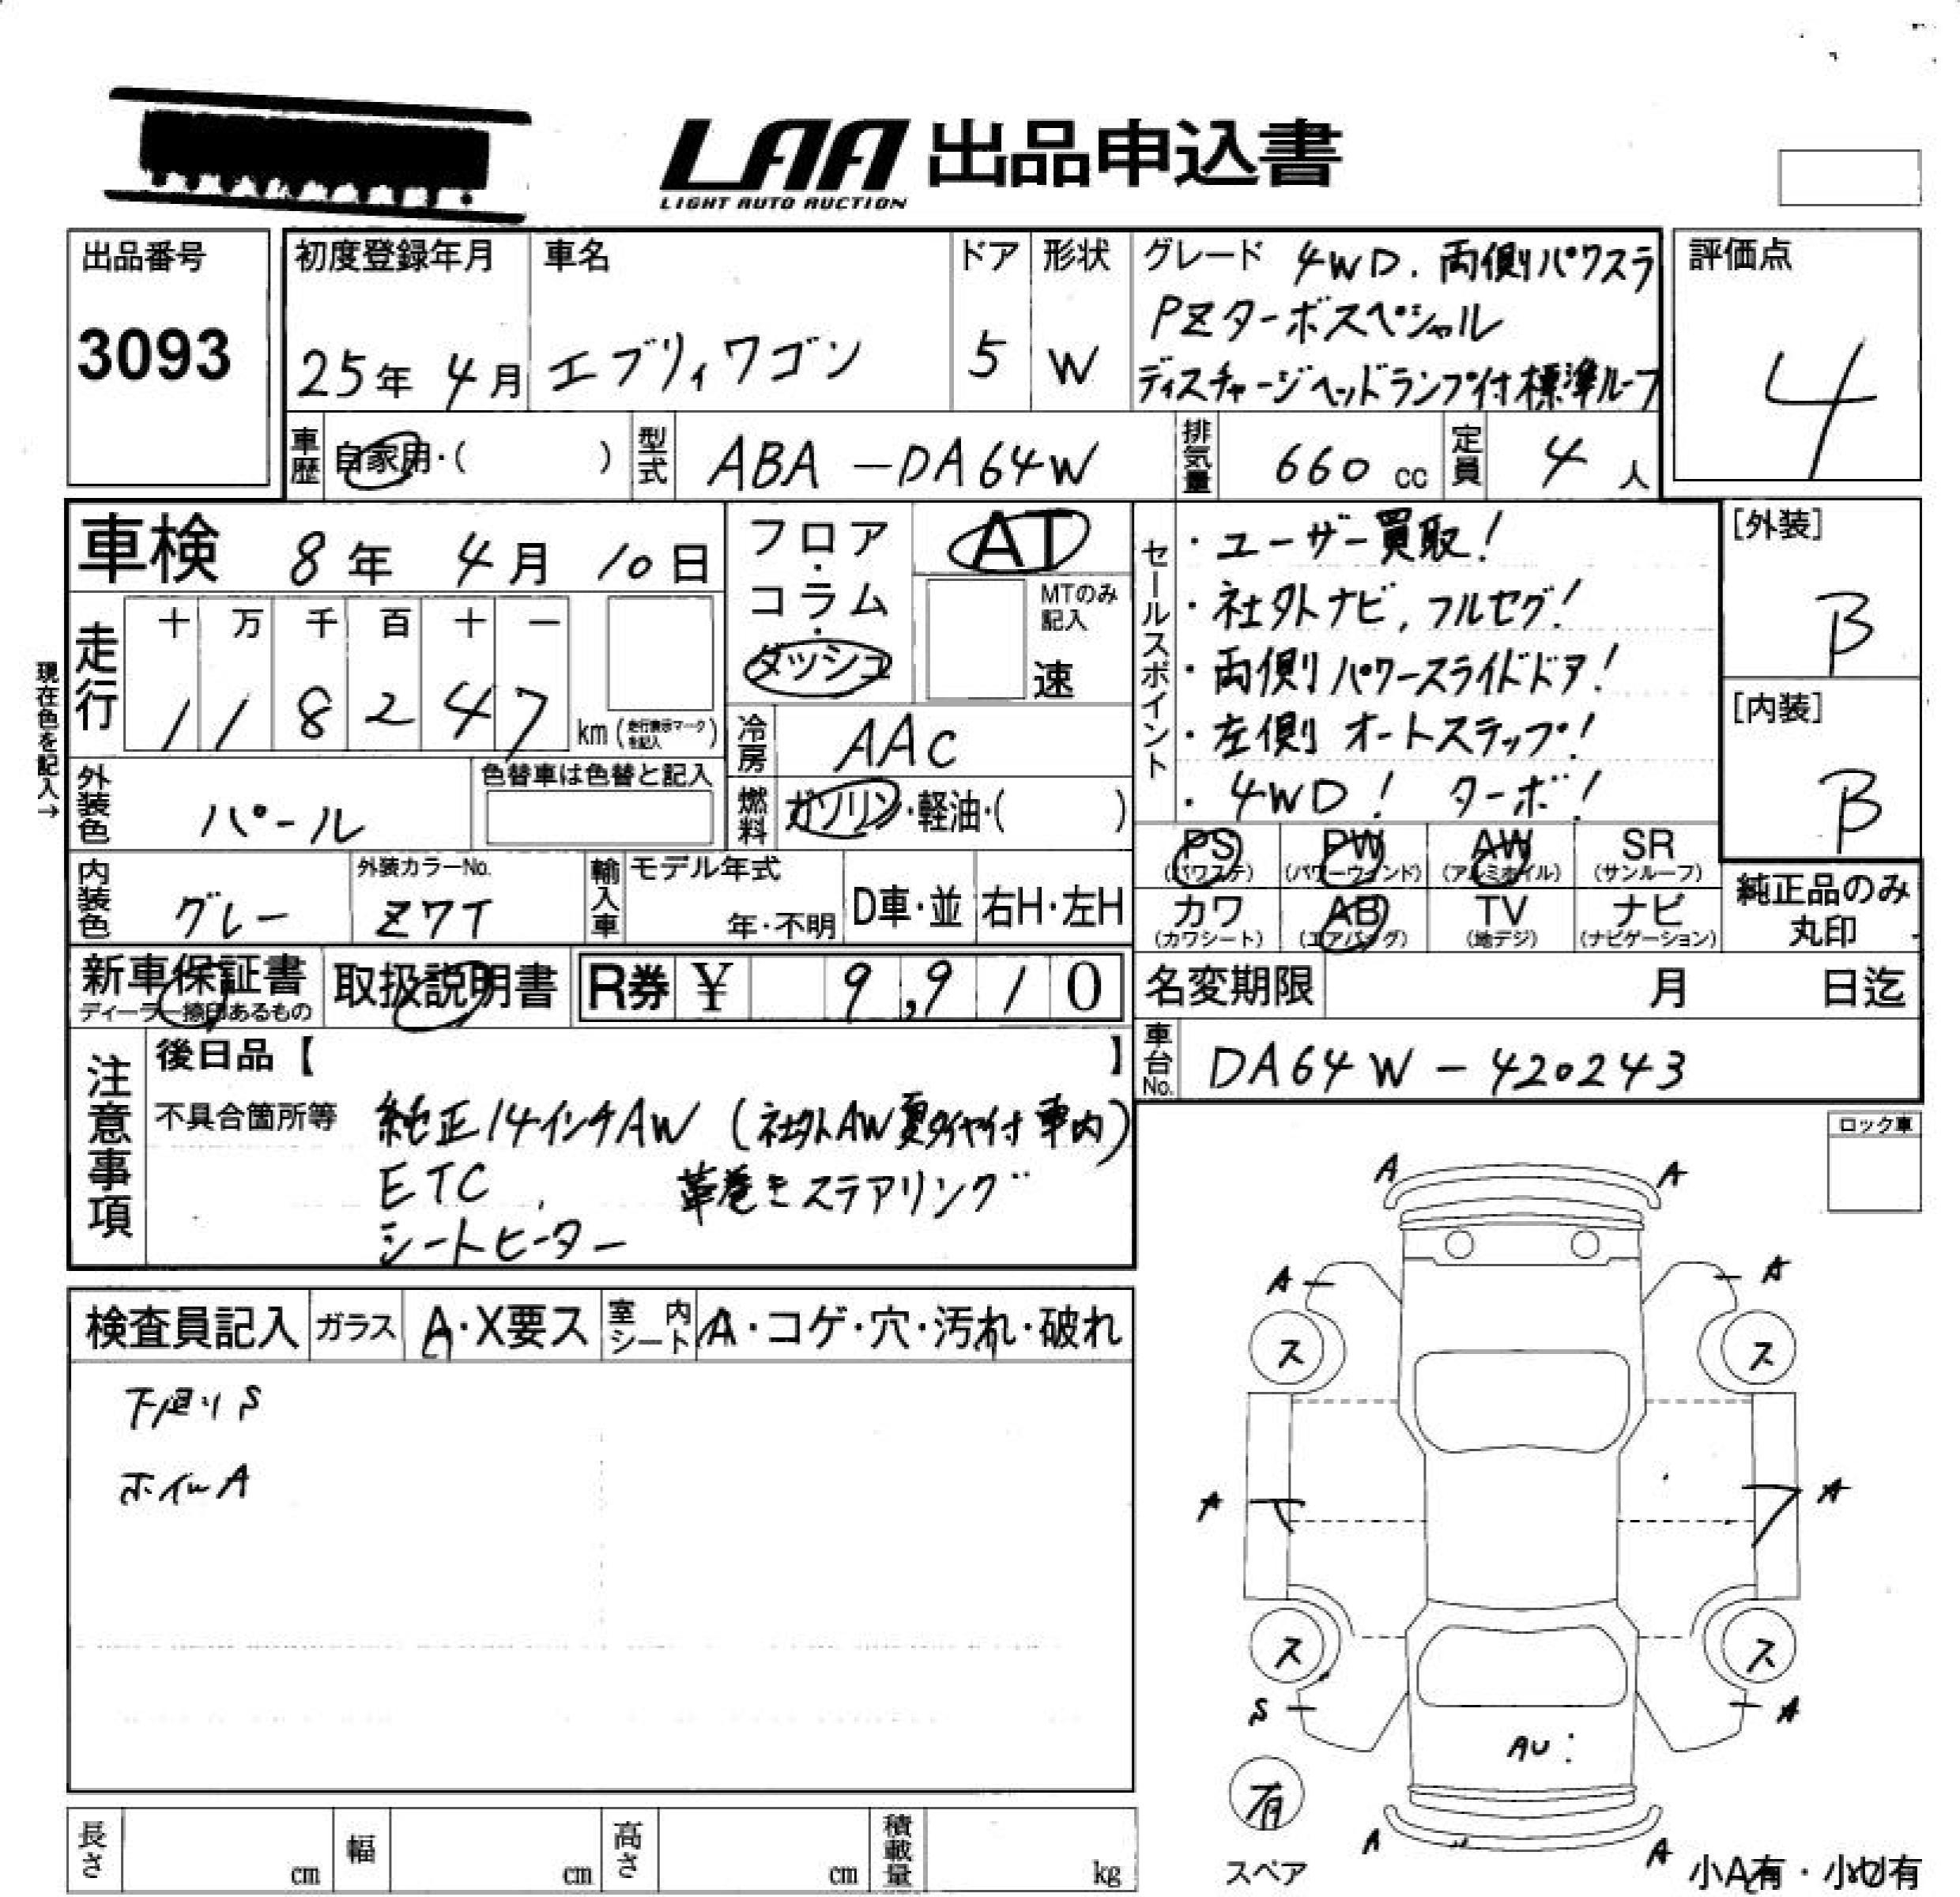 LAA 出品申込書
LIGHT AUTO AUCTION
出品番号
3093
初度登録年月
25年 4月
車名
エブリィワゴン
ドア
5
形状
W
グレード 4WD. 両側パワスラ
PZターボスペシャル
ディスチャージヘッドランプ付標準ルーフ
評価点
4
車歴
自家用・( )
型式
ABA-DA64W
排気量
660 cc
定員
4 人
車検 8年 4月 10日
走行
十 万 千 百 十 一
1 1 8 2 4 7
km (走行表示マークを記入)
現在色を記入→
外装色
パール
色替車は色替と記入
内装色
グレー
外装カラーNo.
Z7T
フロア・コラム・ダッシュ
AT
MTのみ記入
速
冷房
AAC
燃料
ガソリン・軽油・( )
輸入車
モデル年式
年・不明
D車・並
右H・左H
セールスポイント
・ユーザー買取!
・社外ナビ, フルセグ!
・両側パワースライドドア!
・左側オートステップ!
・4WD! ターボ!
[外装]
B
[内装]
B
PS
(パワステ)
PW
(パワーウィンド)
AW
(アルミホイル)
SR
(サンルーフ)
カワ
(カワシート)
AB
(エアバッグ)
TV
(地デジ)
ナビ
(ナビゲーション)
純正品のみ
丸印
新車保証書
ディーラー捺印あるもの
取扱説明書
R券 ¥ 9,910
名変期限 月 日迄
車台No.
DA64W-420243
注意事項
後日品【 】
不具合箇所等 純正14インチAW (社外AW夏タイヤ付車内)
ETC, 革巻きステアリング
シートヒーター
ロック車
検査員記入
ガラス
A・X要ス
室内シート
A・コゲ・穴・汚れ・破れ
下廻りS
ホイルA
A A
A A
ス ス
A A
ス ス
S A
AU:
有
スペア
A A
小A有・小U有
長さ cm
幅 cm
高さ cm
積載量 kg